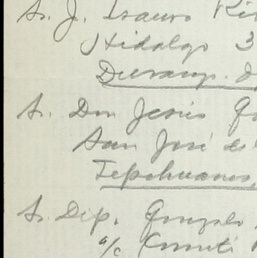 Sr. J. Isauro
Hidalgo 3
Durango. D
Sr. Don Jesús G
San José de
Tepehuanes,
Sr. Dip. Gonzalo
a/c Comité